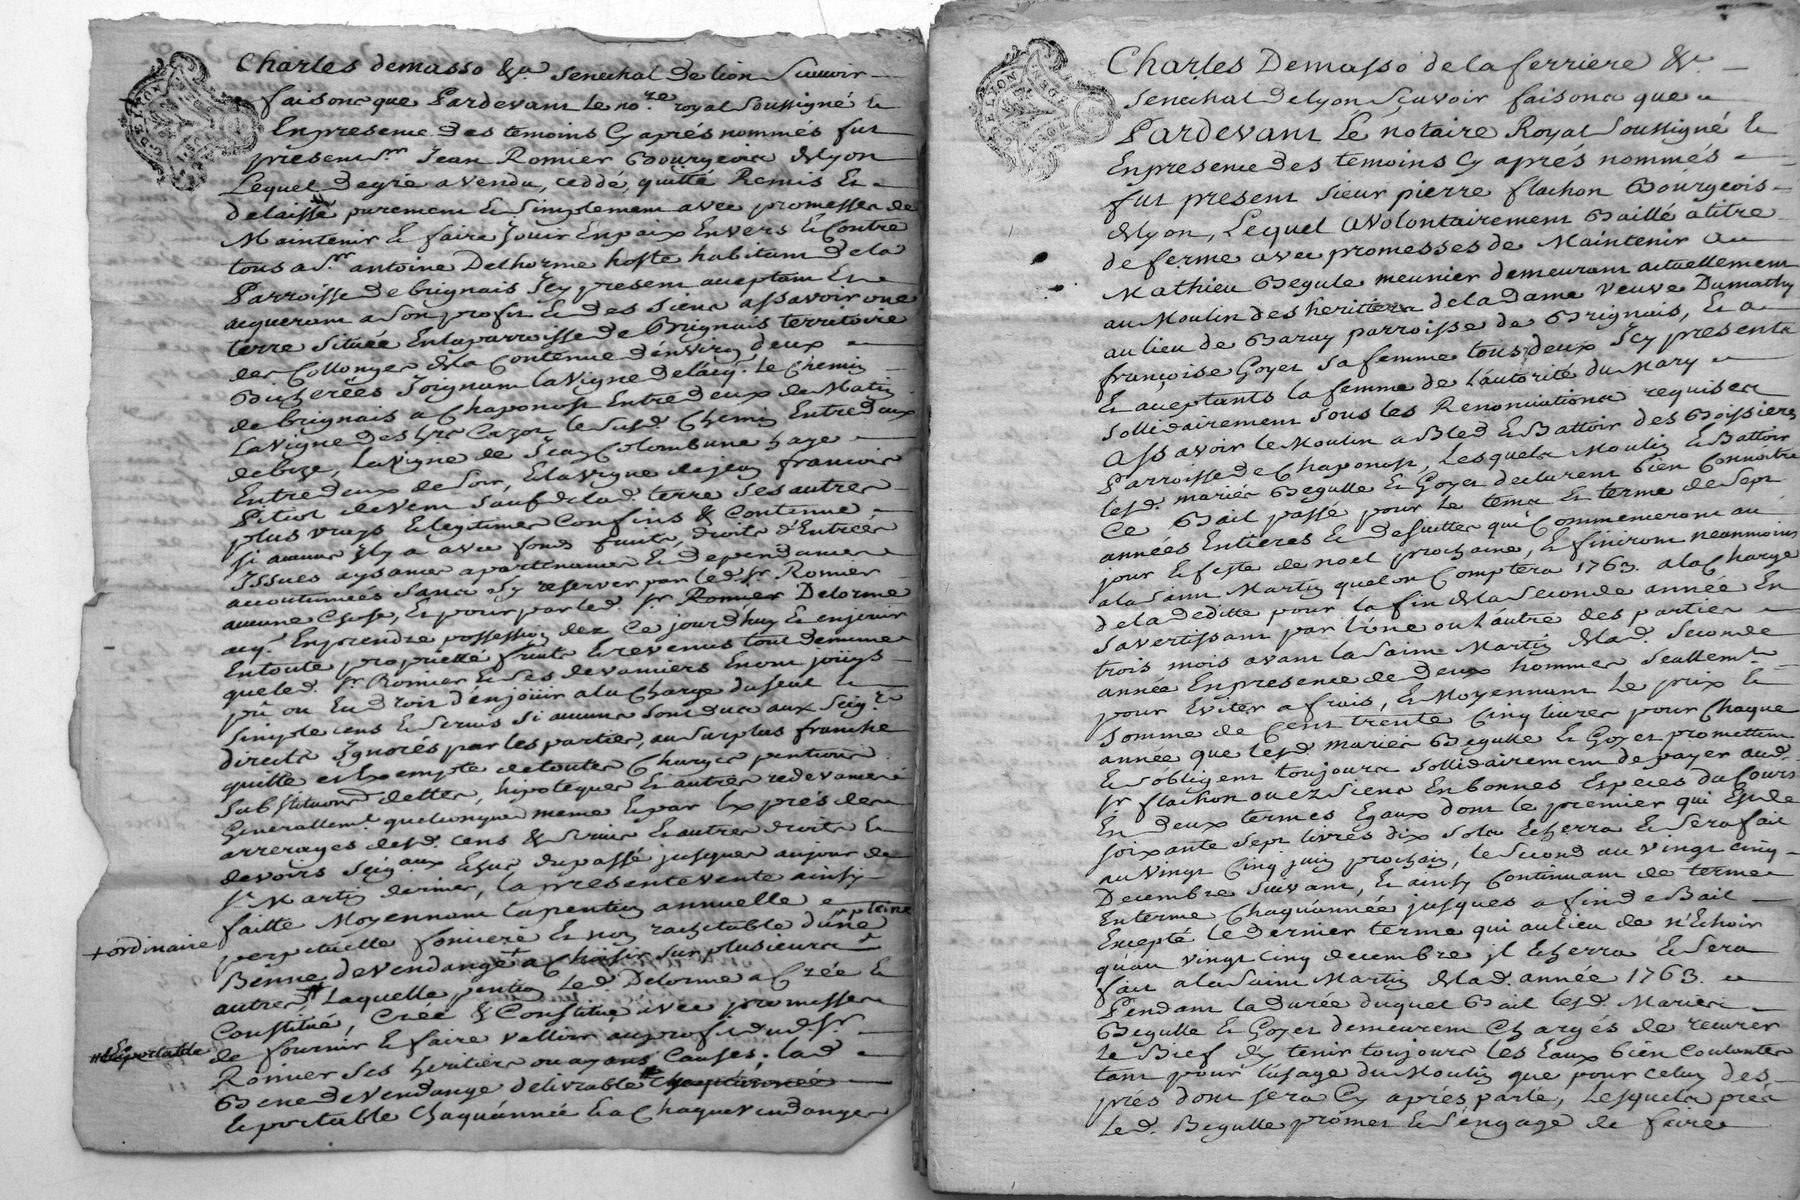 Charles demasso &a Senechal de lion Scavoir
faisons que Pardevant le no.re royal soussigné &
En presence des temoins Cy aprés nommés fut
présent Sr. Jean Romier Bourgeois de lyon
Lequel de gré a vendu, ceddé, quitté Remis Et
delaissé purement & Simplement avec promesses de
Maintenir & faire Jouir En paix Envers & Contre
tous a Sr. antoine Delhorme hoste habitant de la
Parroisse de brignais Jcy present acceptant Et
acquerant a Son profit & des Siens assavoir une
terre Située En la parroisse de Brignais territoire
des Collonges de la Contenue d'environ deux
Bicherées Joignant la Vigne de l'acq. le Chemin
de brignais a Chaponost Entredeux de Matin
La Vigne des hrs Cazot le susd. Chemin Entredeux
de bize, la Vigne de Jean Colomb une haye
Entredeux de Soir, & la vigne de jean francois
Pitiot de Vent Sauf de lad. terre Ses autres
plus vrays & legitimes Confins & Contenue,
si aucuns Jl y a avec fond fruits, droits d'Entrées
Issues aysances apartenances & dependances
accoutumées Sans s'y reserver par led. Sr Romier
aucune Chose, & pour par led. Sr. Romier Delorme
acq. En prendre possession dez Ce jourd'huy & en jouir
En toute proprietté fruits & revenus tout de meme
que led. Sr Romier & Ses devanciers En ont joüys
pû ou Eu Droit d'en joüir a la Charge du seul &
Simple cens & Servis Si aucuns sont dus aux Seig.rs
directs Ignorés par les parties, au Surplus franche
quitte et Exempte de toutes Charges pentions
Substitutions dettes, hipoteques & autres redevances
Generallemt. quelconques meme & par Exprés des
arrerages desd. cens & Servis & autres droits &
devoirs Seig.aux Echus du passé jusques au jour de
St Martin dernier, la presente vente ainsy
faitte Moyennant la pention annuelle &
perpetuelle fonciere & non rachetable d'une pleine
+ ordinaire
Benne de Vendange + a Choisir Sur plusieurs
autres Laquelle pention led. Delorme a Crée &
Constitué, Crée & Constitue avec promesses
de fournir & faire valloir au profit dud. Sr.
Romier Ses heritiers ou ayans Causes; lad.
# & portable
Bene de Vendange delivrable #
& portable Chaqu'année & a Chaque Vendanges
Charles Demasso de la ferriere &a
Senechal de lyon Sçavoir faisons que
Pardevant Le notaire Royal Soussigné &
En presence des temoins Cy aprés nommés
fut present Sieur pierre flachon Bourgeois
de lyon, Lequel a Volontairement Baillé a titre
de ferme avec promesses de Maintenir au
Mathieu Begule meunier demeurant actuellement
au Moulin des heritiers de la Dame veuve Dumathy
au lieu de Barray parroisse de Brignais, & a
françoise Goyet Sa femme tous deux Jcy presents
& acceptants la femme de l'autorité du Mary
Sollidairement Sous les Renonciations requises
Assavoir le Moulin a Bled & Battoir des Boissieres
Parroisse de Chaponost, Lesquels Moulin & Battoir
lesd. mariés Begulle & Goyet declarent bien Connoitre
Ce Bail passé pour Le tems & terme de Sept
années Entieres & de suittes qui Commenceront au
jour & feste de noel prochaine, & finiront neanmoins
a la Saint Martin que l'on Comptera 1763. a la Charge
de la deditte pour la fin de la Seconde année En
S'avertissant par l'une ou l'autre des parties
trois mois avant la Saint Martin de lad. Seconde
année En presence de deux hommes Seullemt.
pour Eviter a frais, & Moyennant Le prix &
Somme de Cent trente Cinq livres pour Chaque
année que lesd. mariés Begulle & Goyet promettent
& s'obligent toujours Sollidairement de payer aud.
Sr flachon ou ez Siens En bonnes Especes du Cours
En deux termes Egaux dont le premier qui Est de
Soixante Sept livres dix Sols Echerra & Sera fait
au Vingt Cinq juin prochain, le Second au vingt cinq
Decembre Suivant, & ainsy Continuant de termes
En terme Chaqu'année jusques a fin de Bail
Excepté le Dernier terme qui au lieu de n'Echoir
qu'au vingt cinq decembre il Echerra & Sera
fait a la Saint Martin de lad. année 1763.
Pendant la Durée duquel Bail lesd. Mariés
Begulle & Goyet demeurent Chargés de recurer
Le Bief d'y tenir toujours les Eaux bien Coulantes
tant pour l'usage du Moulin que pour Celuy des
prés dont sera Cy aprés parlé, Lesquels prés
Led. Begulle promet & s'engage de faire